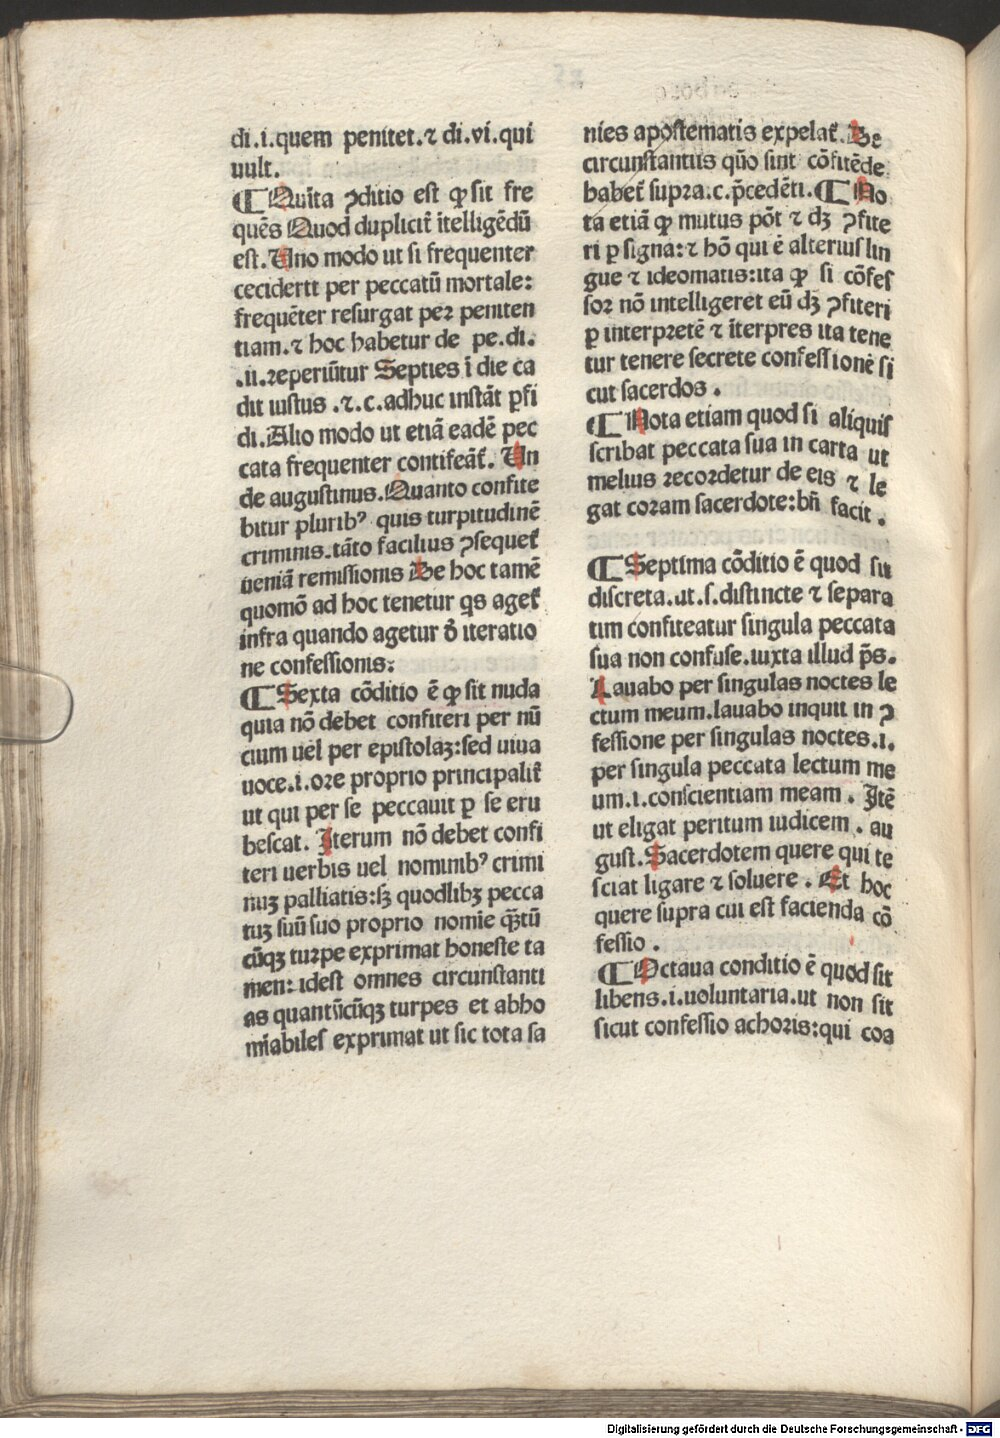 di.i.quem penitet.⁊ di.vi.qui
uult.
¶ Quīta ꝯditio est ꝙ sit fre
quēs Quod duplicit̄ ītelligēdū
est. Uno modo ut si frequenter
cecidertt per peccatū mortale:
frequēter resurgat per peniten
tiam.⁊ hoc habetur de pe.di.
.ii.reperiūtur Septies ī die ca
dit iustus .⁊.c.adhuc instāt ꝑfi
di.Alio modo ut etiā eadē pec
cata frequenter contifeāt̄. Un
de augustinus.Quanto confite
bitur plurib⁹ quis turpitudinē
criminis.tāto facilius ꝯsequet̄
ueniā remissionis De hoc tamē
quomō ad hoc tenetur qͥs aget̄
infra quando agetur ꝺ̄ iteratio
ne confessionis:
¶ Sexta cōditio ē ꝙ sit nuda
quia nō debet confiteri per nū
cium uel per epistolaꝫ:sed uiua
uoce.i.ore proprio principalit̄
ut qui per se peccauit ꝑ se eru
bescat. Iterum nō debet confi
teri uerbis uel nominib⁹ crimi
nuꝫ palliatis:sꝫ quodlibꝫ pecca
tuꝫ suū suo proprio nomīe qꝫ̄tū
cūqꝫ turpe exprimat honeste ta
men: idest omnes circunstanti
as quantūcūqꝫ turpes et abho
mīabiles exprimat ut sic tota sa
nies apostematis expelat̄. De
circunstantiis qūo sint cōfitēde
habet̄ supra.c.p̄cedēti. ¶ No
ta etiā ꝙ mutus pōt ⁊ dꝫ ꝯfite
ri ꝑ signa: ⁊ hō qui ē alterius lin
gue ⁊ ideomatis:ita ꝙ si cōfes
sor nō intelligeret eū dꝫ ꝯfiteri
ꝑ interpretē ⁊ īterpres ita tene
tur tenere secrete confessionē si
cut sacerdos .
¶ Nota etiam quod si aliquis
scribat peccata sua in carta ut
melius recordetur de eis ⁊ le
gat coram sacerdote:bn̄ facit .
¶ Septima cōditio ē quod sit
discreta.ut.s.distincte ⁊ separa
tim confiteatur singula peccata
sua non confuse.iuxta illud p̄s.
Lauabo per singulas noctes le
ctum meum.lauabo inquit in ꝯ
fessione per singulas noctes.i.
per singula peccata lectum me
um.i.conscientiam meam . Itē
ut eligat peritum iudicem . au
gust. Sacerdotem quere qui te
sciat ligare ⁊ soluere . Et hoc
quere supra cui est facienda cō
fessio .
¶ Octaua conditio ē quod sit
libens.i.uoluntaria.ut non sit
sicut confessio achoris:qui coa
Digitalisierung gefördert durch die Deutsche Forschungsgemeinschaft - DFG